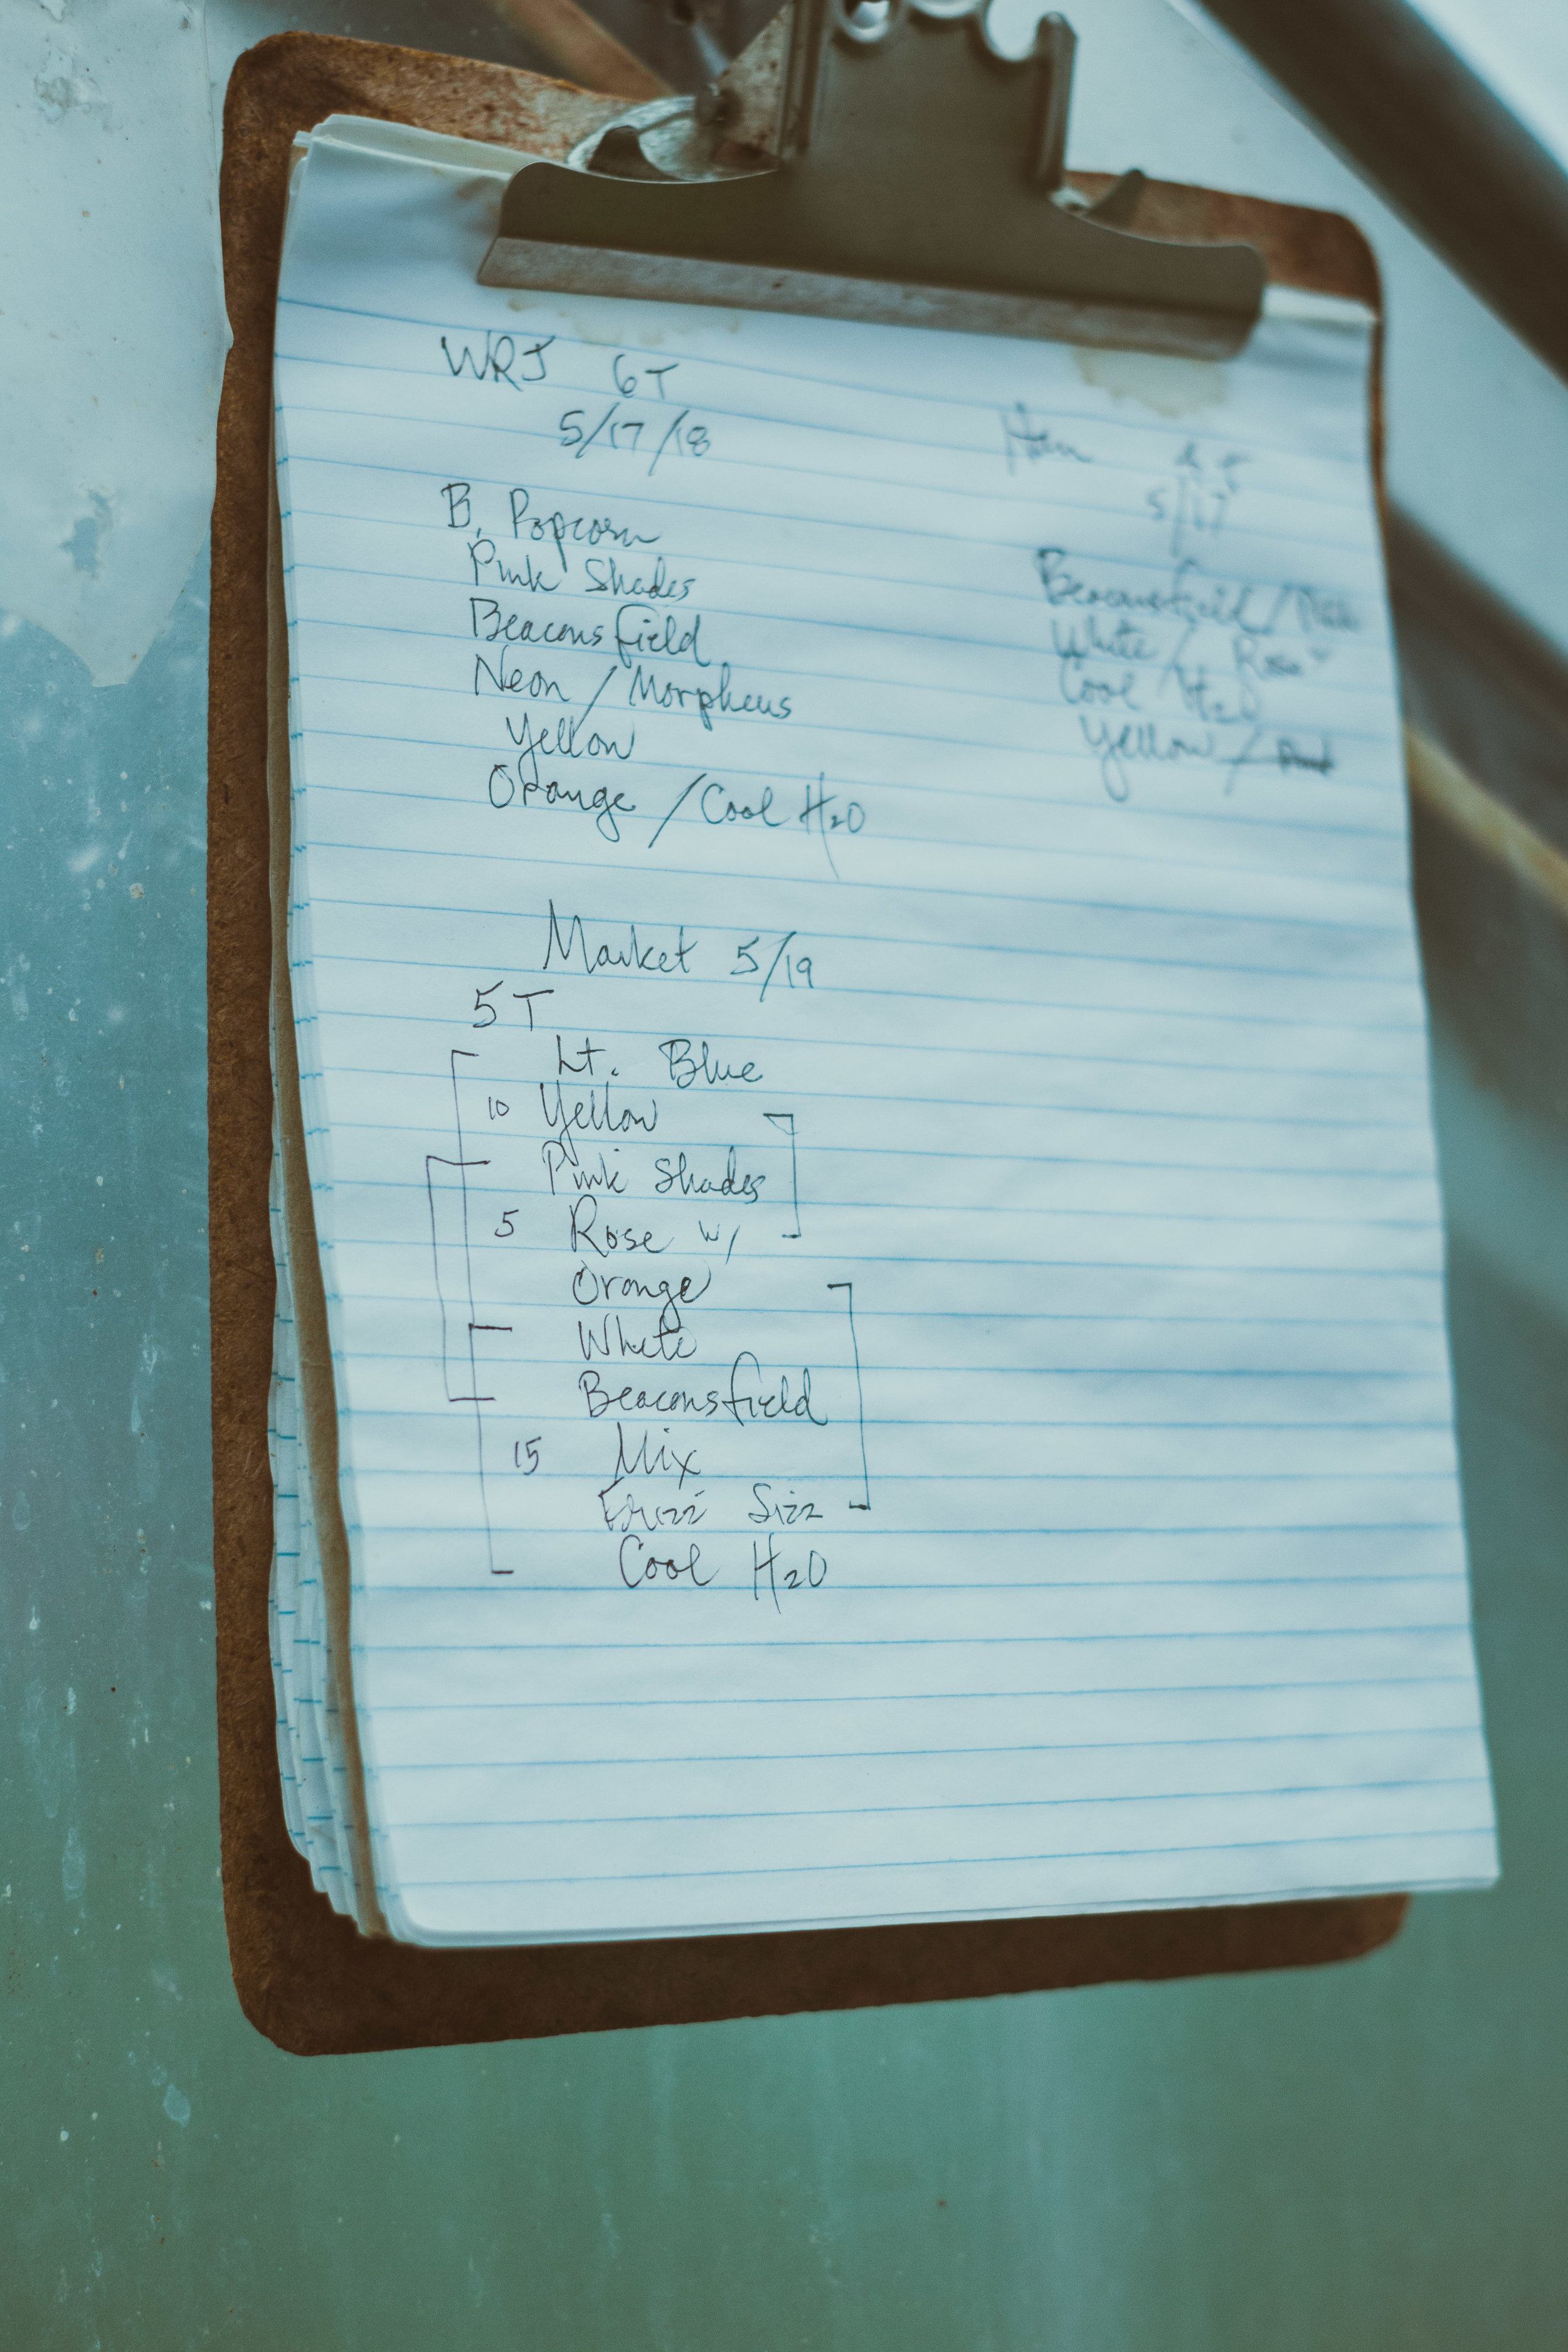 WRJ 6T
5/17/18
B. Popcorn
Pink Shades
Beaconsfield
Neon / Morpheus
Yellow
Orange / Cool H2O
5/17
Beaconsfield /
White / Rose
Cool H2O
Yellow /
Market 5/19
5T
Lt. Blue
10 Yellow
Pink Shades
5 Rose w/
Orange
White
Beaconsfield
15 Mix
Frizz Sizz
Cool H2O